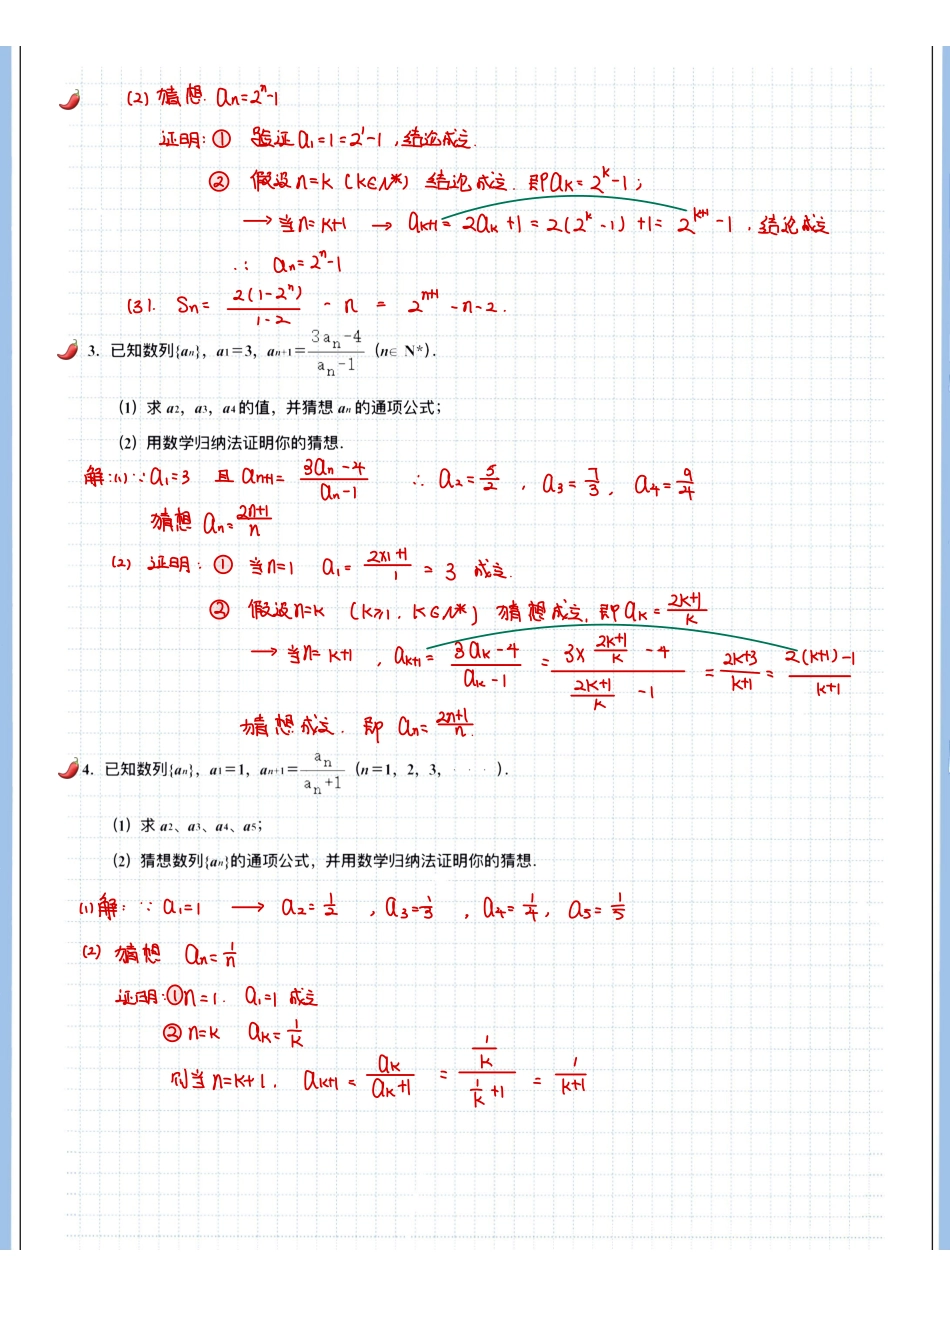 (2) 猜想. an=2^n-1
证明: ① 验证a1=1=2^1-1,结论成立.
② 假设n=k (k∈N*) 结论成立. 即ak=2^k-1;
→当n=k+1 → ak+1=2ak+1=2(2^k-1)+1=2^(k+1)-1,结论成立
∴ an=2^n-1
(3). Sn= 2(1-2^n)/(1-2) - n = 2^(n+1)-n-2.
3. 已知数列{an}, a1=3, an+1= (3an-4)/(an-1) (n∈N*).
(1) 求 a2, a3, a4 的值, 并猜想 an 的通项公式;
(2) 用数学归纳法证明你的猜想.
解:(1) ∵a1=3 且 an+1= (3an-4)/(an-1) ∴ a2=5/2, a3=7/3, a4=9/4
猜想 an=(2n+1)/n
(2) 证明: ① 当n=1 a1=(2×1+1)/1=3 成立.
② 假设n=k (k≥1. k∈N*) 猜想成立, 即ak=(2k+1)/k
→当n=k+1, ak+1= (3ak-4)/(ak-1) = (3×(2k+1)/k-4)/((2k+1)/k-1) = (2k+3)/(k+1) = (2(k+1)-1)/(k+1)
猜想成立. 即 an=(2n+1)/n.
4. 已知数列{an}, a1=1, an+1= an/(an+1) (n=1, 2, 3, ···).
(1) 求 a2、a3、a4、a5;
(2) 猜想数列{an}的通项公式, 并用数学归纳法证明你的猜想.
(1)解: ∵ a1=1 → a2=1/2, a3=1/3, a4=1/4, a5=1/5
(2) 猜想 an=1/n
证明:①n=1. a1=1 成立
② n=k ak=1/k
则当 n=k+1. ak+1= ak/(ak+1) = (1/k)/(1/k+1) = 1/(k+1)